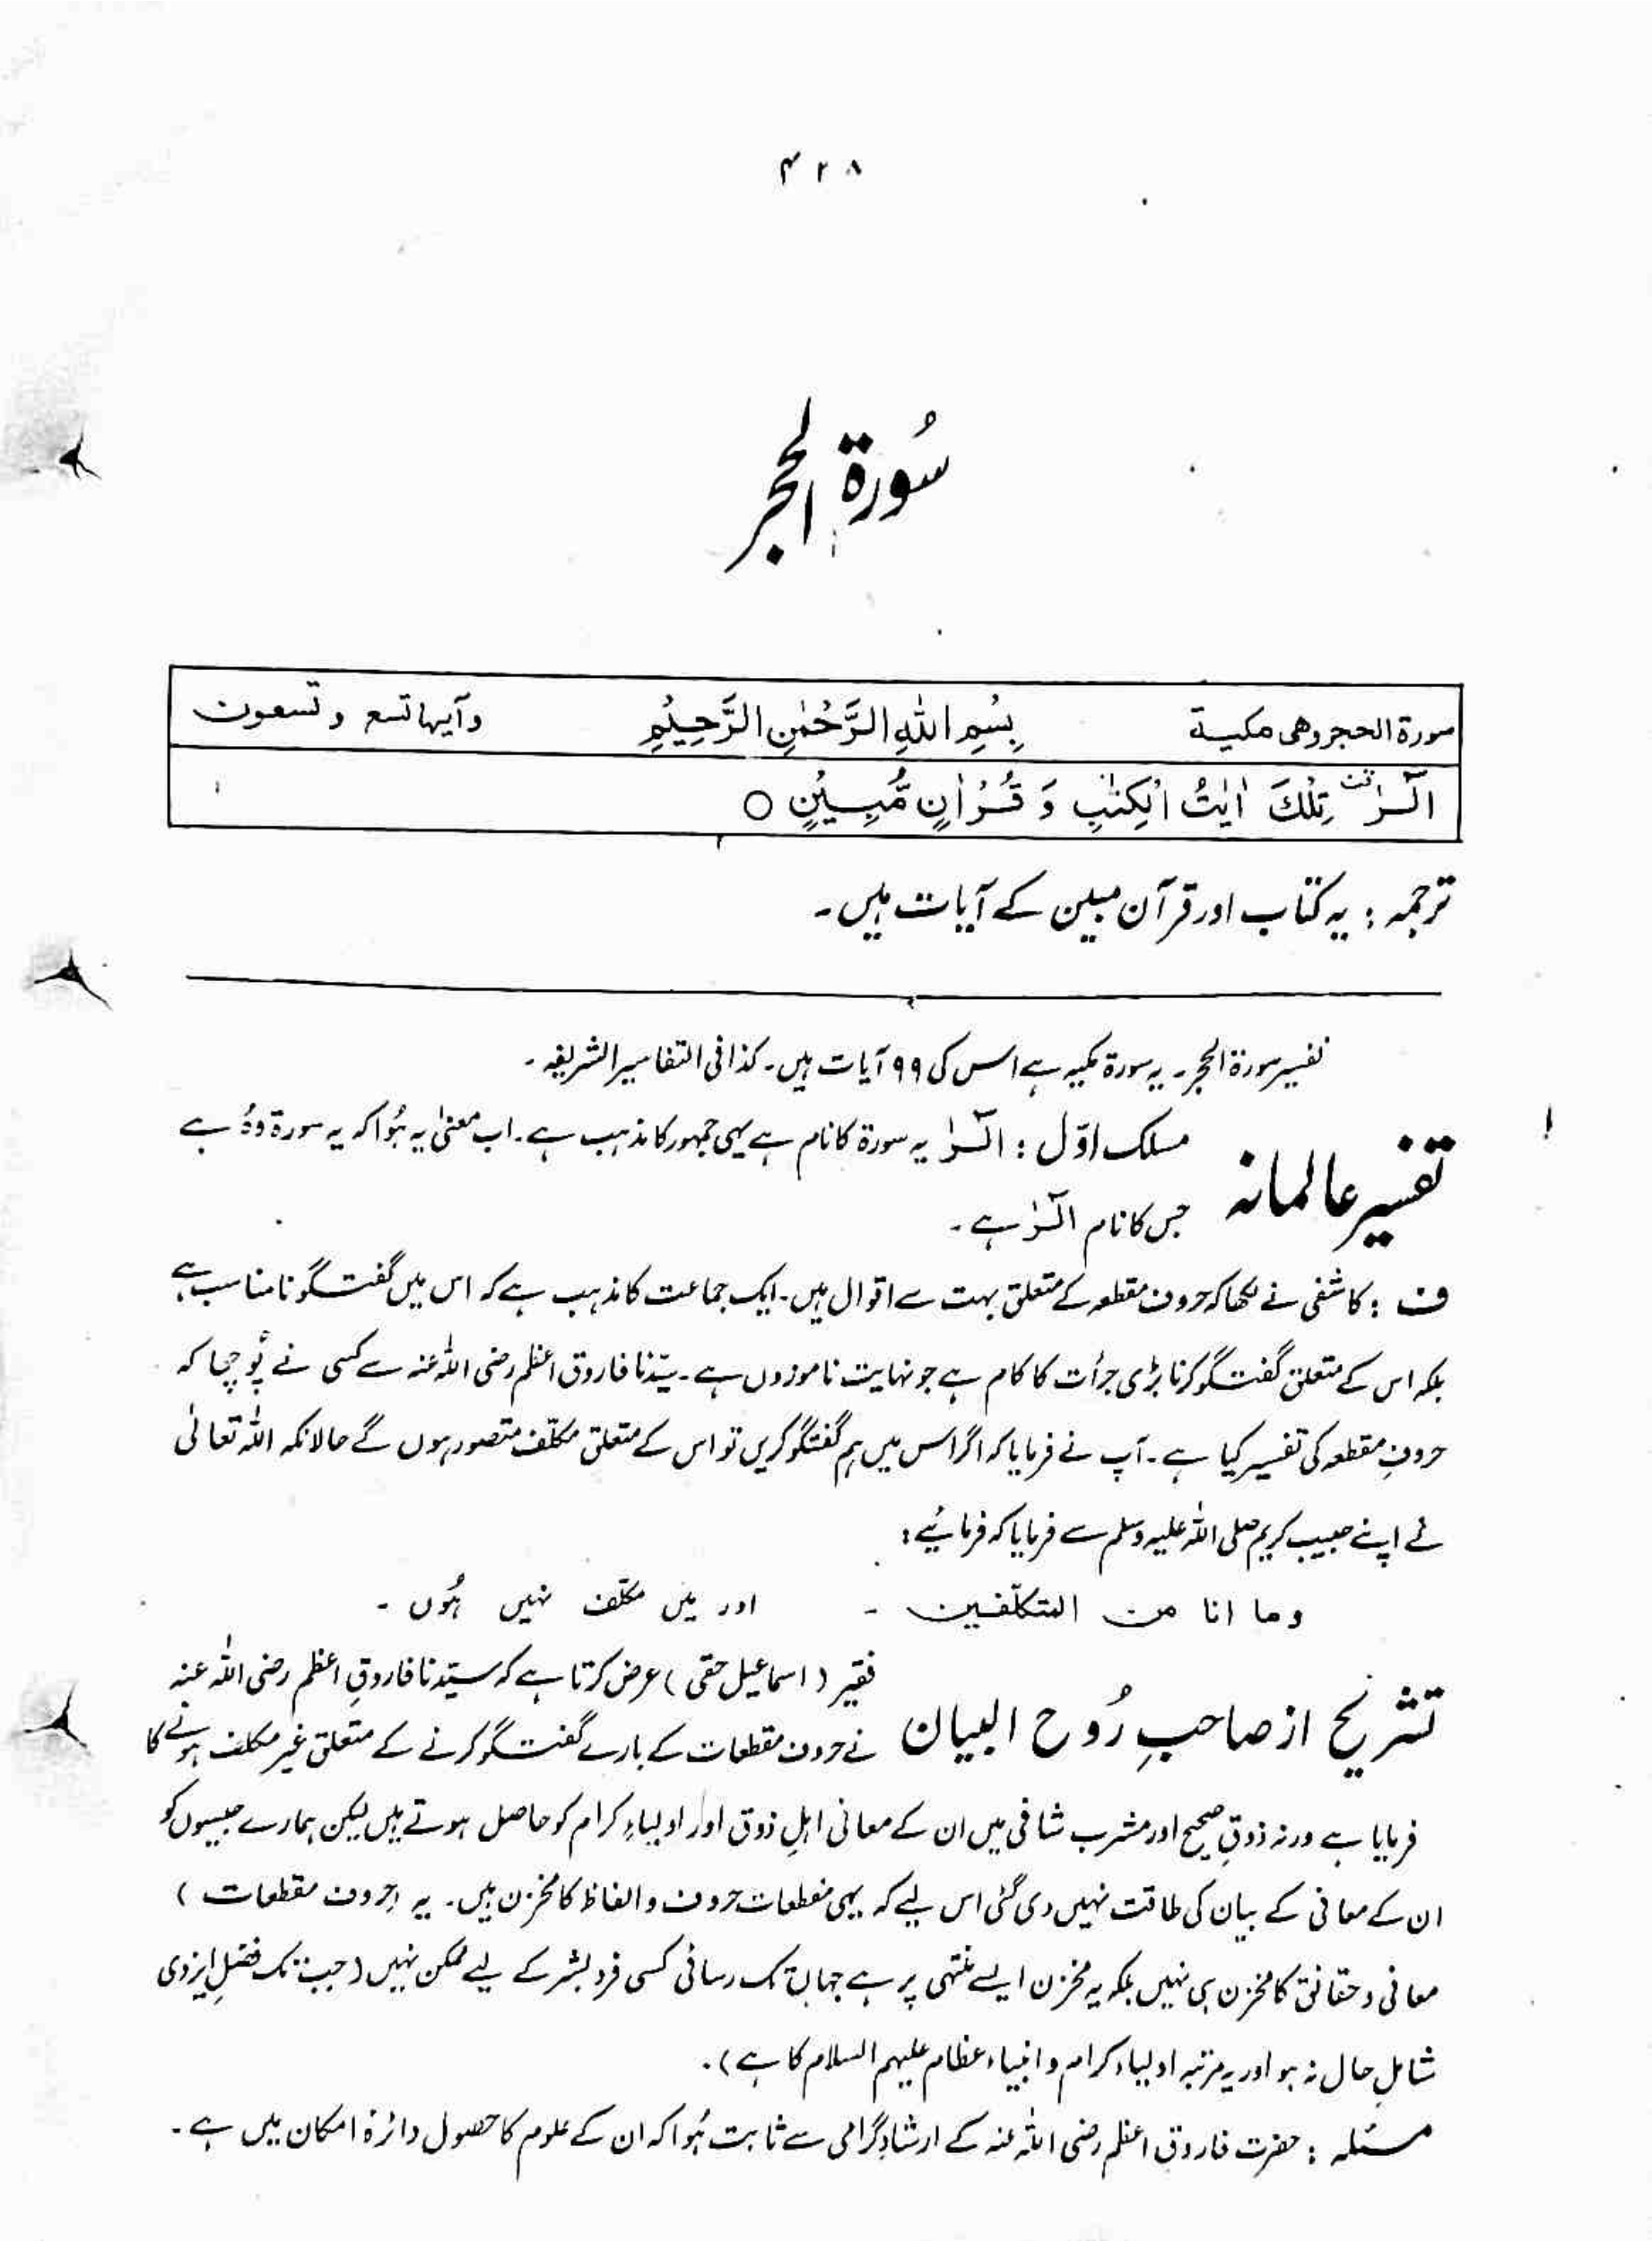 ۴۲۸
سُورۃ الحجر
سورۃ الحجر وھی مکیۃ بِسْمِ اللّٰہِ الرَّحْمٰنِ الرَّحِیْمِ وآیہا تسع و تسعون
الٓـرٰ تِلْکَ اٰیٰتُ الْکِتٰبِ وَ قُـرْاٰنٍ مُّبِـیْنٍ ○
ترجمہ : یہ کتاب اور قرآن مبین کے آیات ہیں۔
تفسیر سورۃ الحجر۔ یہ سورۃ مکیہ ہے اس کی ۹۹ آیات ہیں۔ کذا فی التفاسیر الشریفہ۔
تفسیر عالمانہ
مسلک اوّل : الٓـرٰ یہ سورۃ کا نام ہے یہی جمہور کا مذہب ہے۔ اب معنیٰ یہ ہُوا کہ یہ سورۃ وہُ ہے
جس کا نام الٓـرٰ ہے۔
ف : کاشفی نے لکھا کہ حروف مقطعہ کے متعلق بہت سے اقوال ہیں۔ ایک جماعت کا مذہب ہے کہ اس میں گفتگو نامناسب ہے
بلکہ اس کے متعلق گفتگو کرنا بڑی جرأت کا کام ہے جو نہایت ناموزوں ہے۔ سیّدنا فاروق اعظم رضی اللہ عنہ سے کسی نے پُوچھا کہ
حروفِ مقطعہ کی تفسیر کیا ہے۔ آپ نے فرمایا کہ اگر اس میں ہم گفتگو کریں تو اس کے متعلق مکلّف متصور ہوں گے حالانکہ اللہ تعالیٰ
نے اپنے حبیب کریم صلی اللہ علیہ وسلم سے فرمایا کہ فرمائیے :
وما انا من المتکلّفین ۔ اور میں مکلّف نہیں ہُوں ۔
تشریح از صاحبِ رُوح البیان
فقیر ( اسماعیل حقی ) عرض کرتا ہے کہ سیّدنا فاروقِ اعظم رضی اللہ عنہ
نے حروف مقطعات کے بارے گفتگو کرنے کے متعلق غیر مکلف ہونے کا
فرمایا ہے ورنہ ذوقِ صحیح اور مشرب شافی میں ان کے معانی اہلِ ذوق اور اولیاءِ کرام کو حاصل ہوتے ہیں لیکن ہمارے جیسوں کو
ان کے معانی کے بیان کی طاقت نہیں دی گئی اس لیے کہ یہی مقطعات حروف و الفاظ کا مخزن ہیں۔ یہ (حروف مقطعات )
معانی و حقائق کا مخزن ہی نہیں بلکہ یہ مخزن ایسے منتہی پر ہے جہاں تک رسائی کسی فرد بشر کے لیے ممکن نہیں (جب تک فضلِ ایزدی
شاملِ حال نہ ہو اور یہ مرتبہ اولیاء کرام و انبیاء عظام علیہم السلام کا ہے )۔
مسئلہ : حضرت فاروق اعظم رضی اللہ عنہ کے ارشادِ گرامی سے ثابت ہُوا کہ ان کے علوم کا حصول دائرۂ امکان میں ہے۔